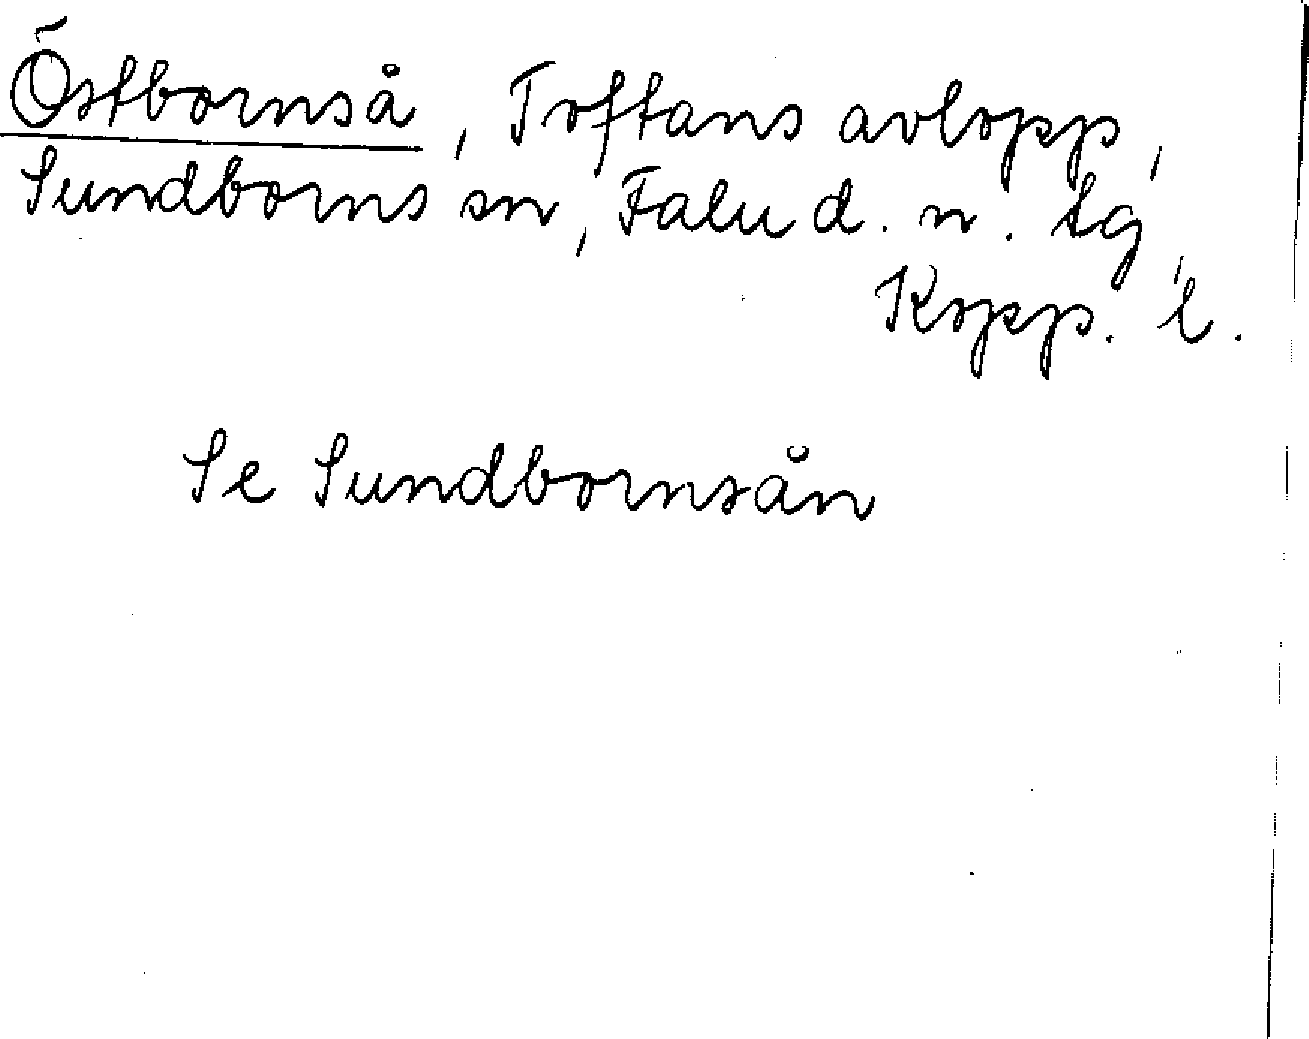 Östbornså, Toftans avlopp,
Sundborns sn, Falu d. n. tg,
Kopp. l.
Se Sundbornsån